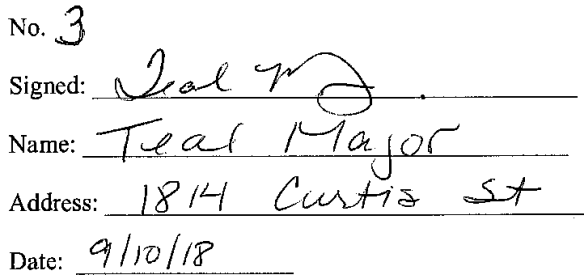 No. 3
Signed: Teal M
Name: Teal Major
Address: 1814 Curtis St
Date: 9/10/18